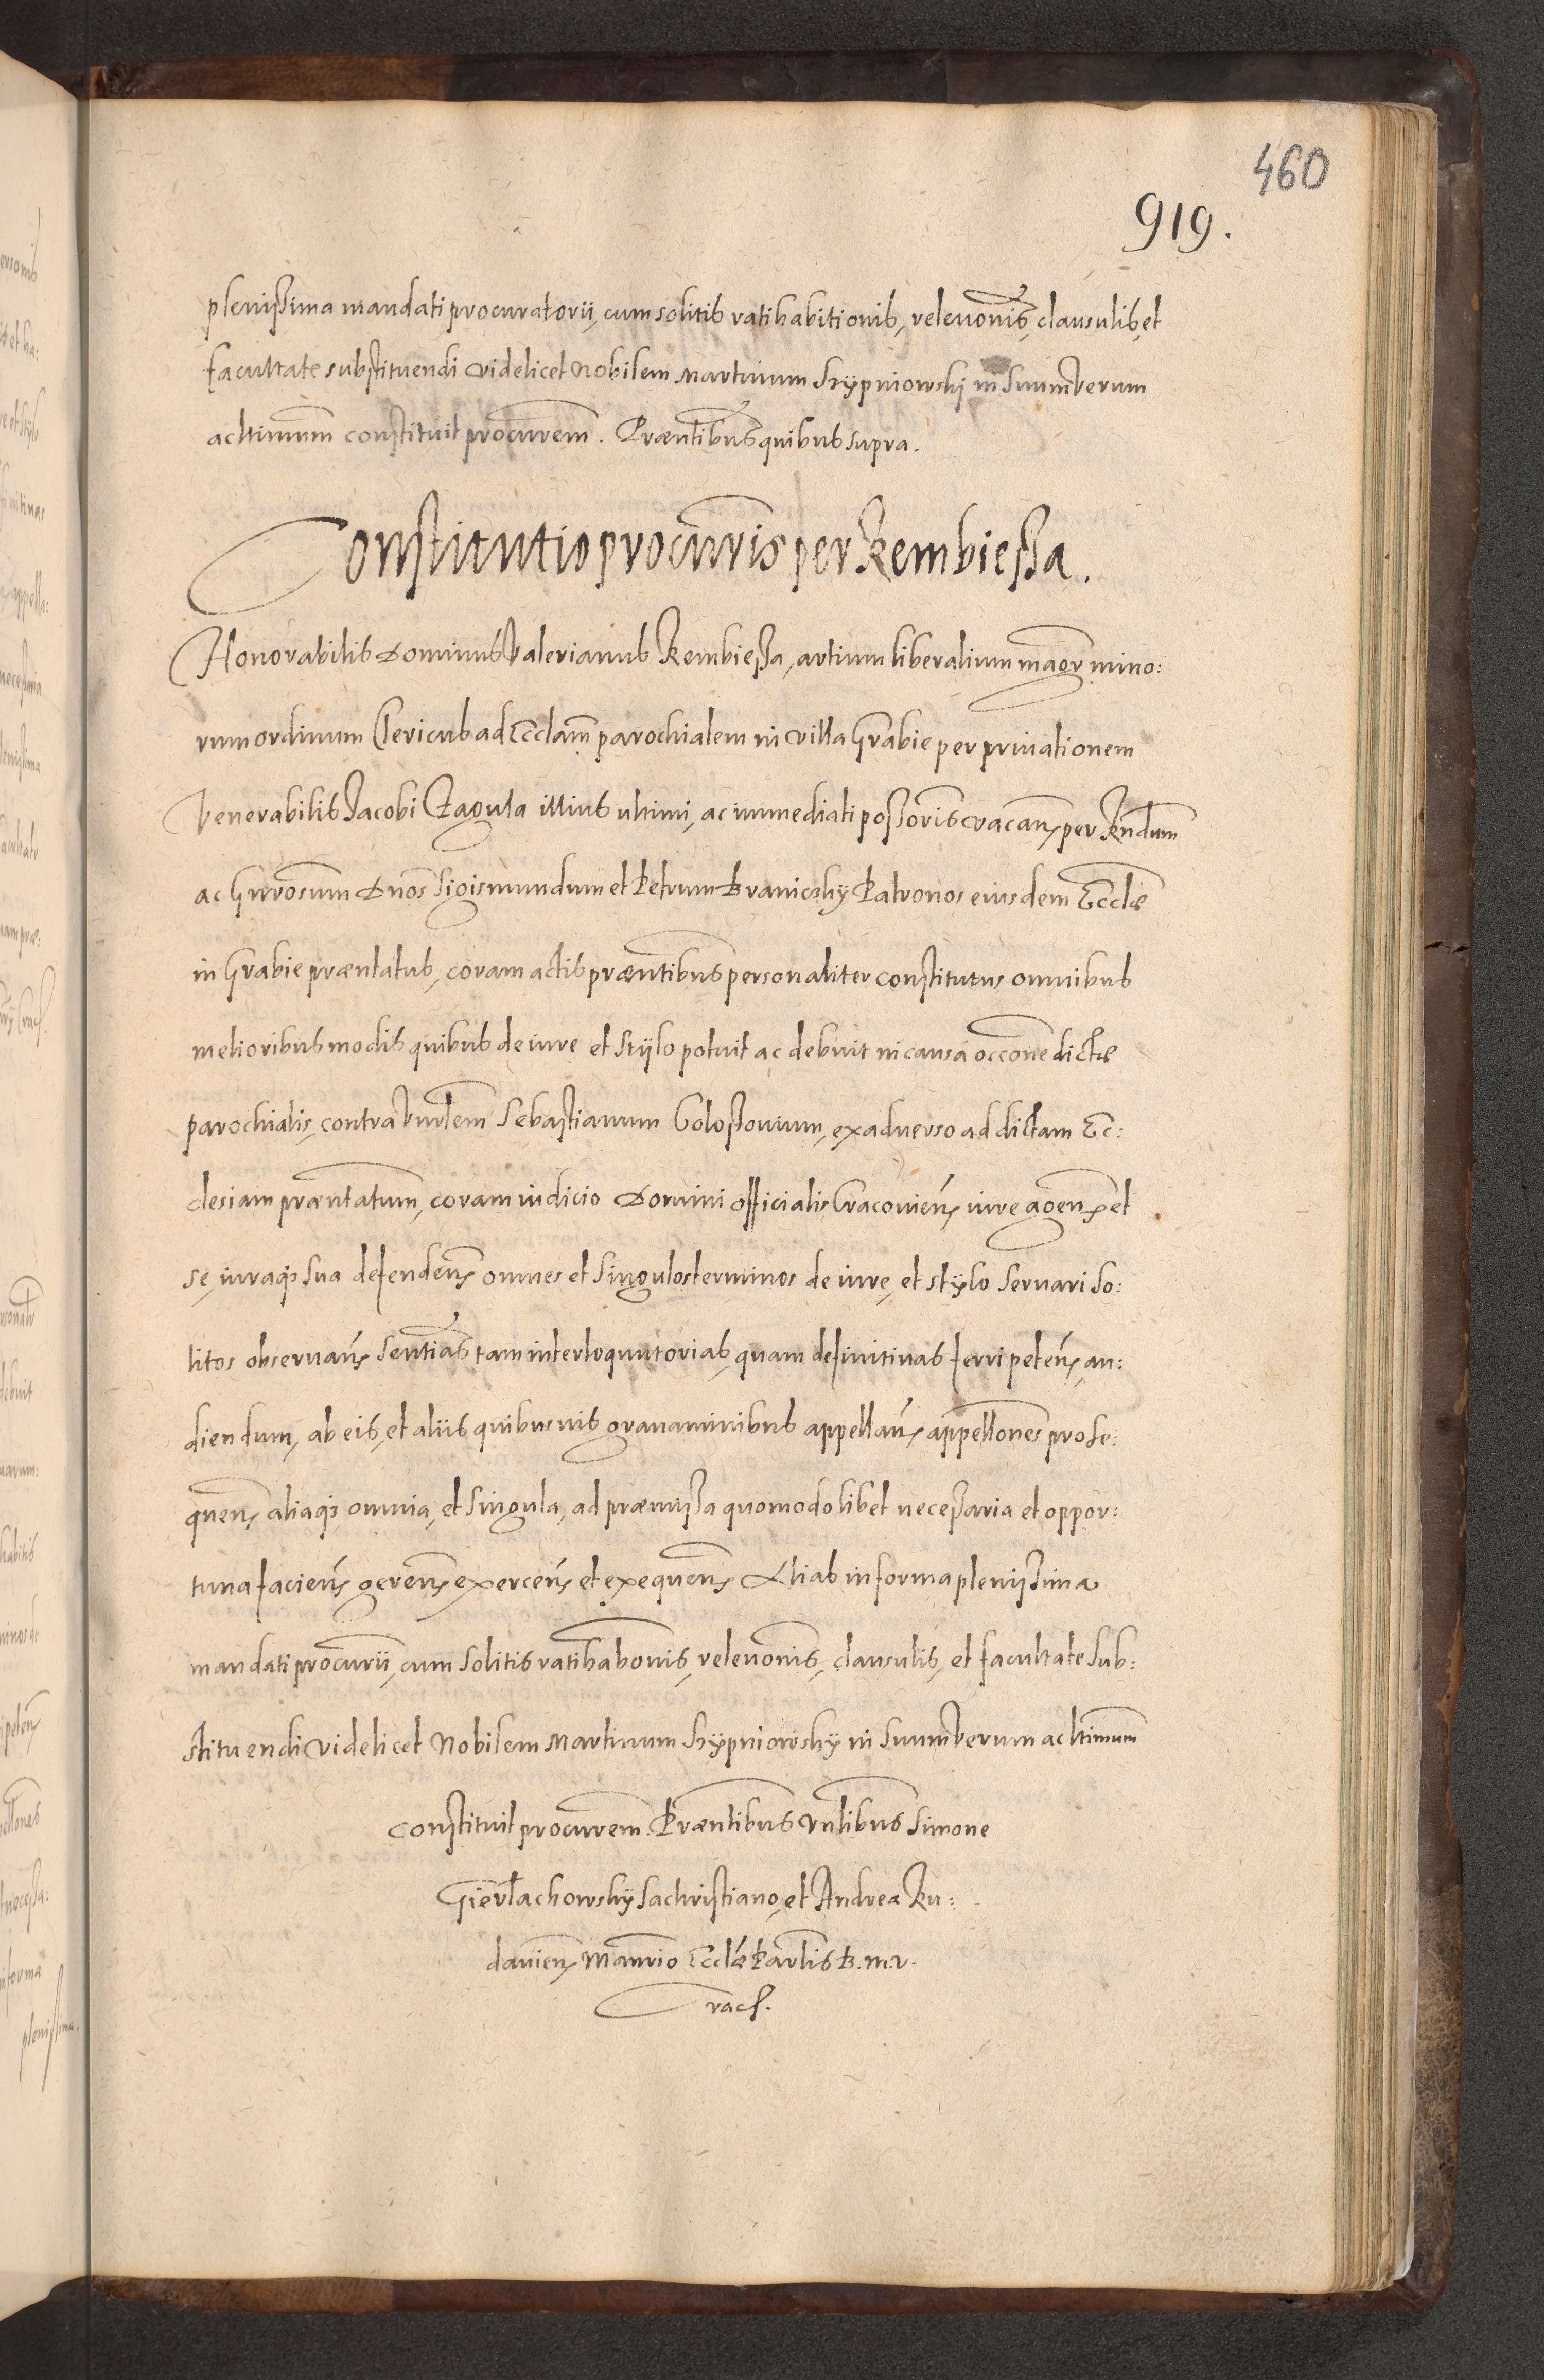 460
919.
plenissima mandati procuratorii, cum solitis ratihabitionis, releuonis, clausulis, et
facultate substituendi videlicet Nobilem Martinum Szÿpniowskj in suum verum
ac ltimum constituit procurem. Præntibus quibus supra.
Constitutio procuris per Kembiessa.
Honorabilis Dominus Valerianus Kembiessa, artium liberalium magr mino:
rum ordinum Clericus ad Ecclam parochialem in villa Grabie per priuationem
Venerabilis Jacobi Zagula illius ultimi, ac immediati possoris vacan, per Rndum
ac Gnrosum Dnos Sigismundum et Petrum Braniczkÿ Patronos eiusdem Ecclæ
in Grabie præntatus, coram actis præntibus personaliter constitutus omnibus
melioribus modis quibus de iure et stÿlo potuit ac debuit in causa occone dictæ
parochialis, contra Vnrlem Sebastianum Golossouium, ex aduerso ad dictam Ec:
clesiam præntatum, coram iudicio Domini Officialis Cracouien, iure agen, et
se, iuraq; sua defenden, omnes et singulos terminos de iure, et stÿlo seruari so:
litos obseruan, sentias tam interloquutorias, quam definitiuas ferri peten, au:
diendum, ab eis, et aliis quibusuis grauaminibus appellan, appellones prose:
quen, aliaq; omnia, et singula, ad præmissa quomodolibet necessaria et oppor:
tuna facien, geren, exercen, et exequen, Alias in forma plenissima
mandati procurii, cum solitis ratihabonis, releuonis, clausulis, et facultate sub:
stituendi videlicet Nobilem Martinum Szÿpniowskÿ in suum verum ac ltimum
constituit procurem. Præntibus Vnlibus Simone
Gierlachowskÿ Sachristiano, et Andrea Ku:
dauien, Manrio Ecclæ Parlis B. M. V.
Crac.